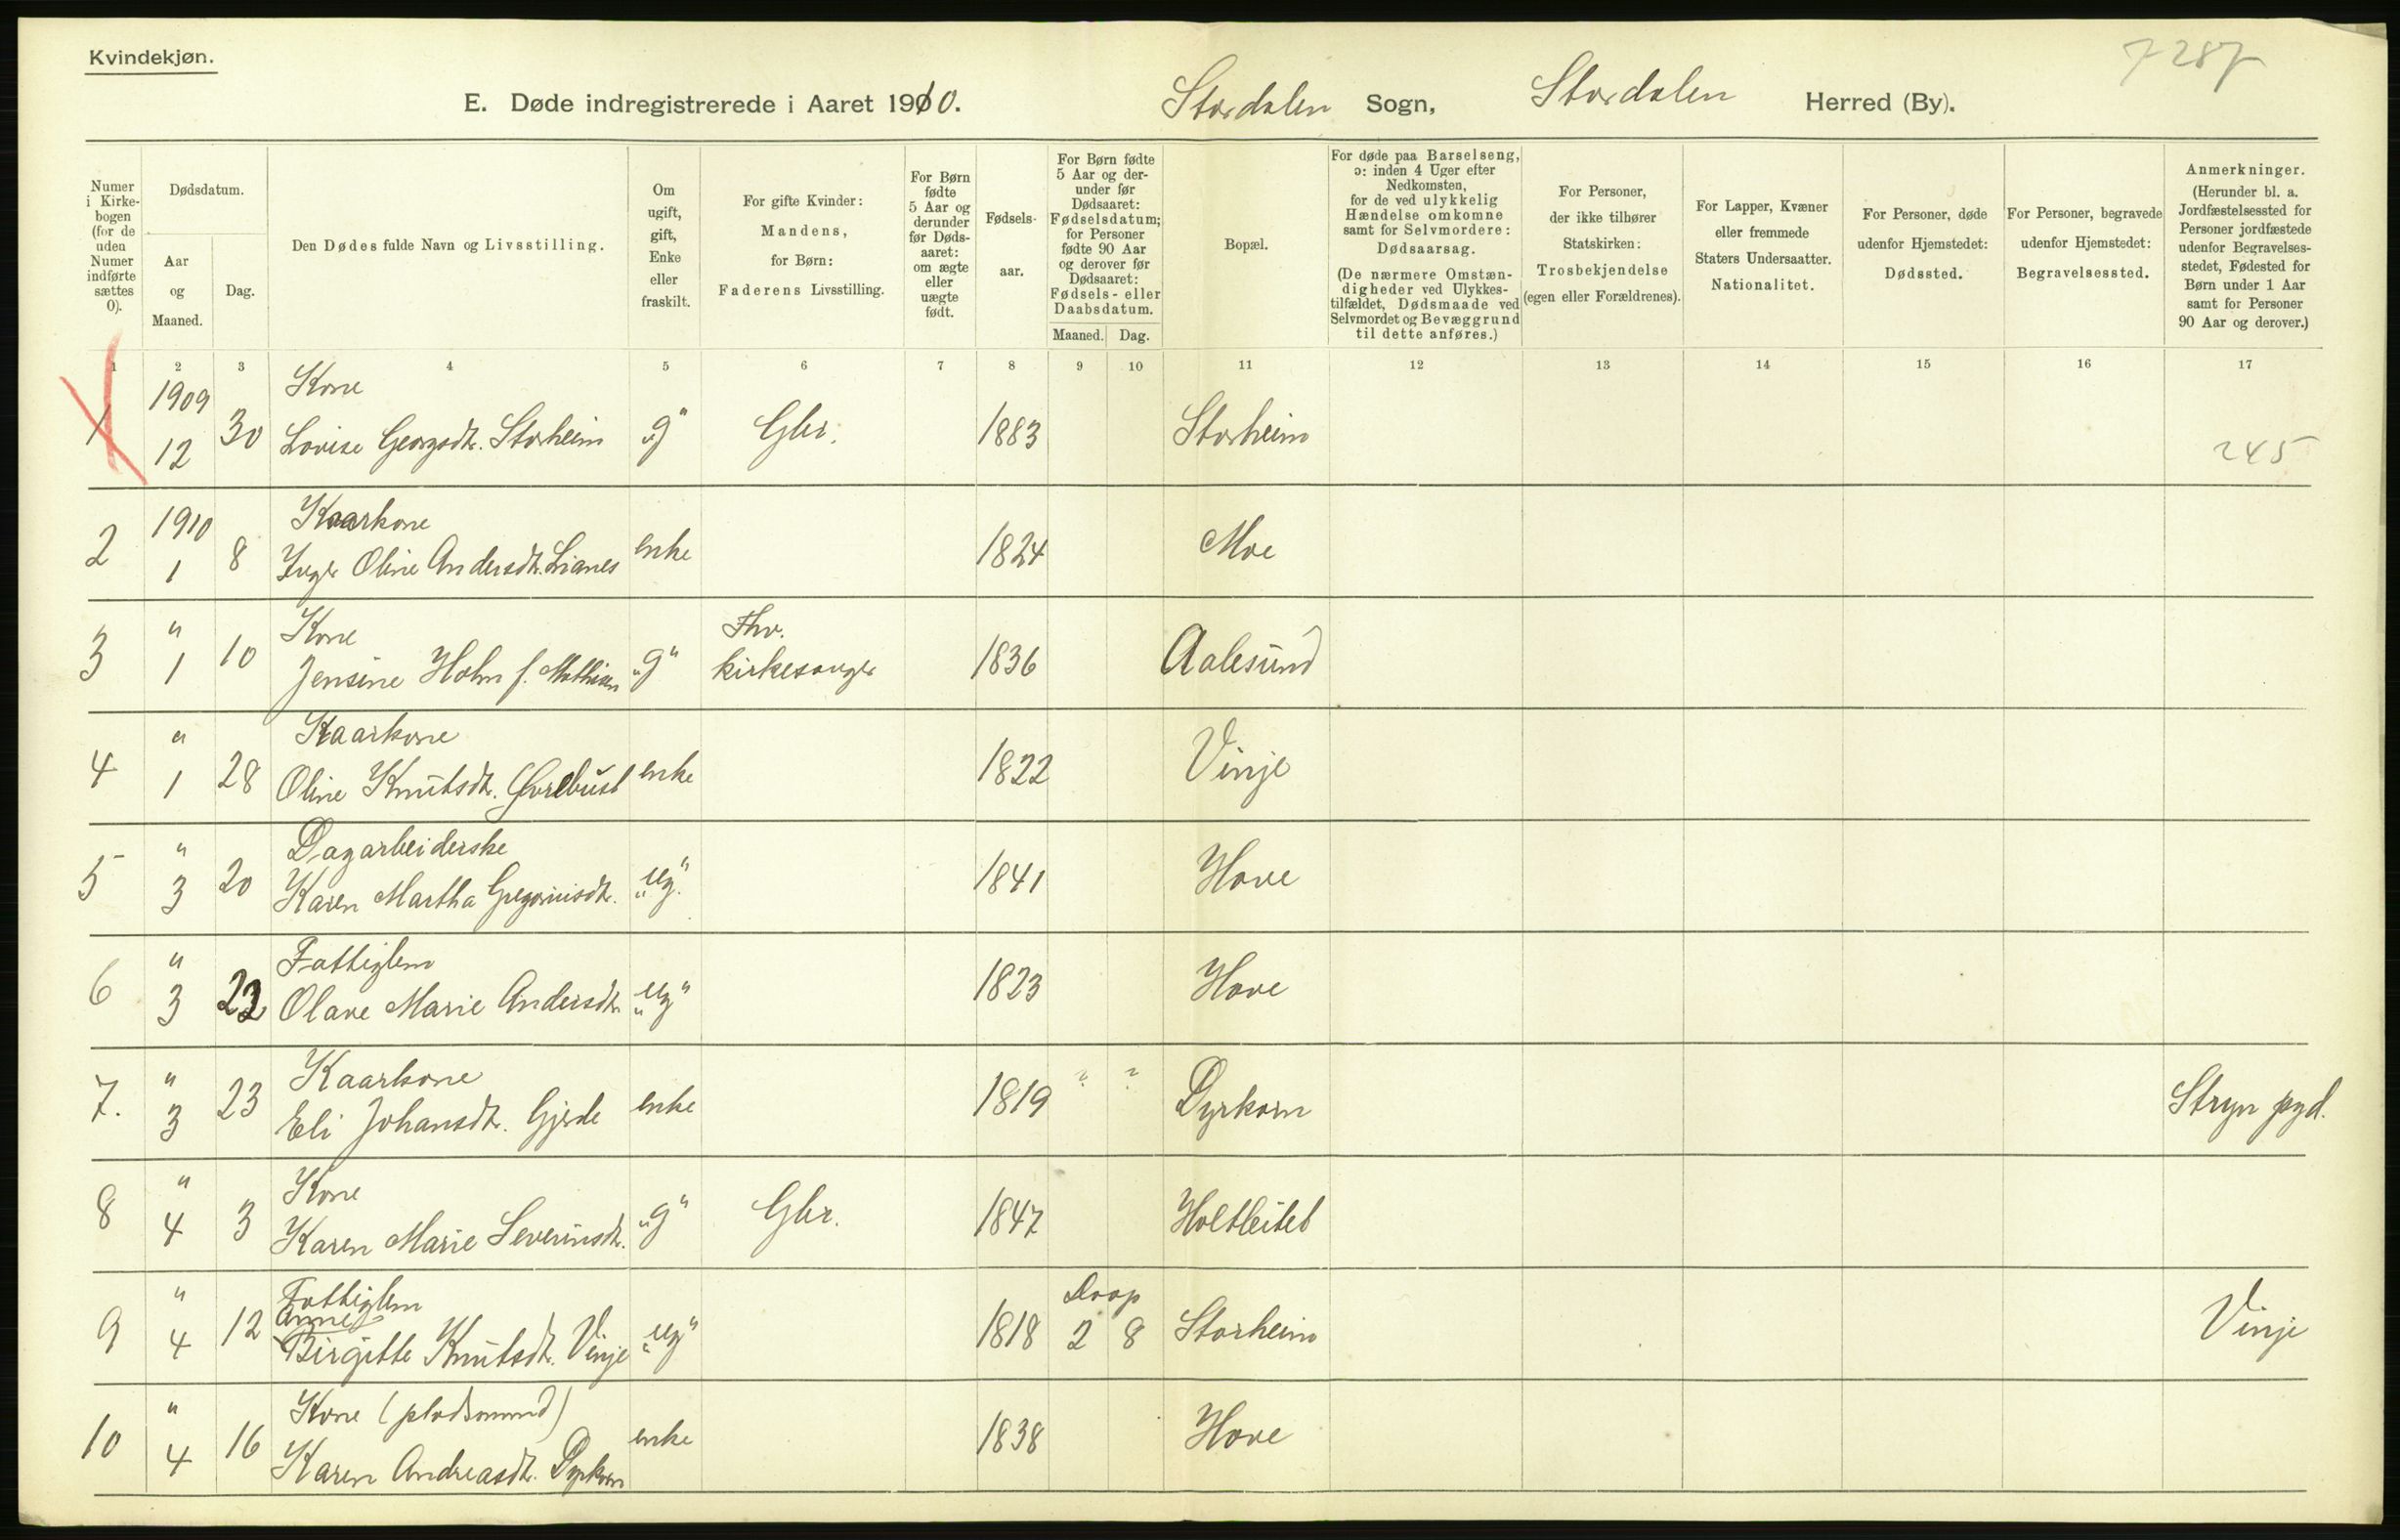 Kvindekjøn.
7287
E. Døde indregistrerede i Aaret 1910. Stordalen Sogn, Stordalen Herred (By).
Numer i Kirkebogen (for de uden Numer indførte sættes 0).
Dødsdatum.
Aar og Maaned.
Dag.
Den Dødes fulde Navn og Livsstilling.
Om ugift, gift, Enke eller fraskilt.
For gifte Kvinder: Mandens, for Børn: Faderens Livsstilling.
For Børn fødte 5 Aar og derunder før Dødsaaret: om ægte eller uægte født.
Fødselsaar.
For Børn fødte 5 Aar og derunder før Dødsaaret: Fødselsdatum; for Personer fødte 90 Aar og derover før Dødsaaret: Fødsels- eller Daabsdatum.
Maaned. Dag.
Bopæl.
For døde paa Barselseng, ɔ: inden 4 Uger efter Nedkomsten, for de ved ulykkelig Hændelse omkomne samt for Selvmordere: Dødsaarsag.
(De nærmere Omstændigheder ved Ulykkestilfældet, Dødsmaade ved Selvmordet og Bevæggrund til dette anføres.)
For Personer, der ikke tilhører Statskirken: Trosbekjendelse (egen eller Forældrenes).
For Lapper, Kvæner eller fremmede Staters Undersaatter. Nationalitet.
For Personer, døde udenfor Hjemstedet: Dødssted.
For Personer, begravede udenfor Hjemstedet: Begravelsessted.
Anmerkninger. (Herunder bl. a. Jordfæstelsessted for Personer jordfæstede udenfor Begravelsesstedet, Fødested for Børn under 1 Aar samt for Personer 90 Aar og derover.)
1 2 3 4 5 6 7 8 9 10 11 12 13 14 15 16 17
1909 Kone
1 12 30 Lovise Georgsdtr. Storheim „g" Gbr. 1883 Storheim 245
1910 Kaarkone
2 1 8 Inger Oline Andersdtr. Lianes enke 1824 Moe
" Kone Fhv.
3 1 10 Jensine Holm f. Mathisen „g" kirkesanger 1836 Aalesund
" Kaarkone
4 1 28 Oline Knutsdtr. Øvrebust enke 1822 Vinje
" Dagarbeiderske
5 3 20 Karen Martha Gregoriusdtr. „ug." 1841 Hove
" Fattiglem
6 3 23 Olave Marie Andersdtr. „ug" 1823 Hove
" Kaarkone
7. 3 23 Eli Johansdtr. Gjerde enke 1819 ? ? Dyrkorn Stryn pgd.
" Kone
8 4 3 Karen Marie Severinsdtr. „g" Gbr. 1847 Holtleitet
" Fattiglem Daap
Anne
9 4 12 Birgitte Knutsdtr. Vinje „ug" 1818 2 8 Storheim Vinje
" Kone (pladsmand)
10 4 16 Karen Andreasdtr. Dyrkorn enke 1838 Hove